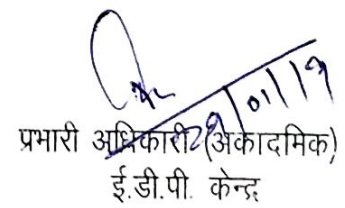 29/01/19
प्रभारी अधिकारी (अकादमिक)
ई.डी.पी. केन्द्र